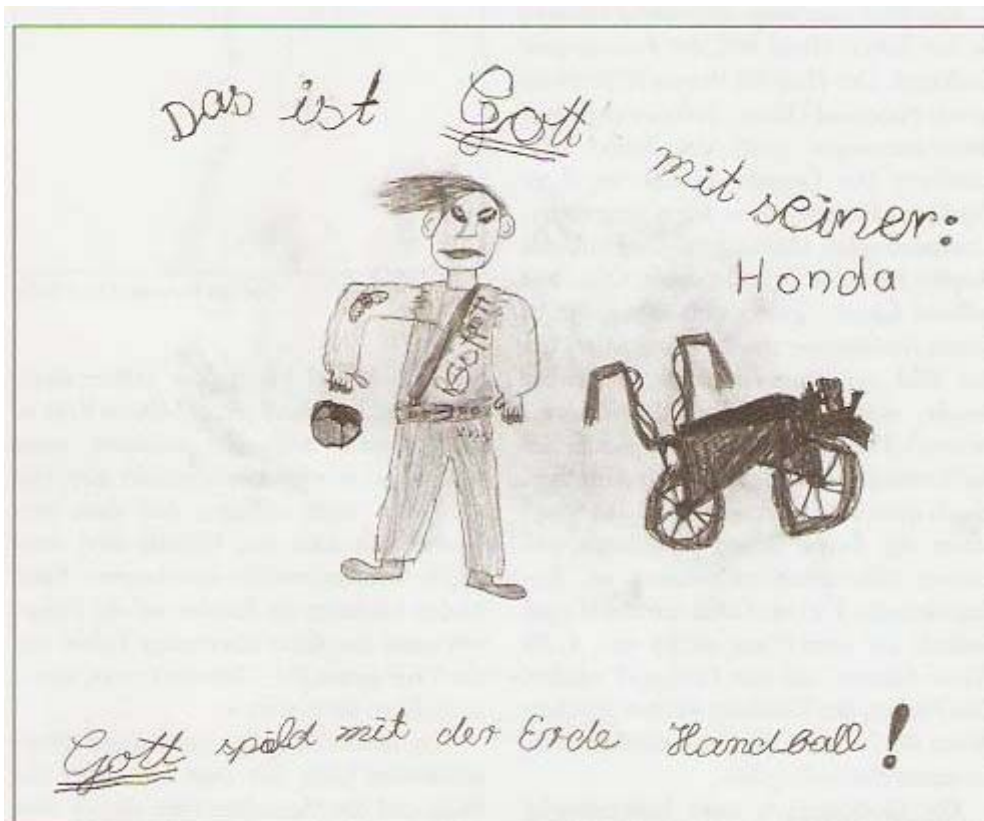 Das ist Gott mit seiner:
Honda
Gott spield mit der Erde Handball!